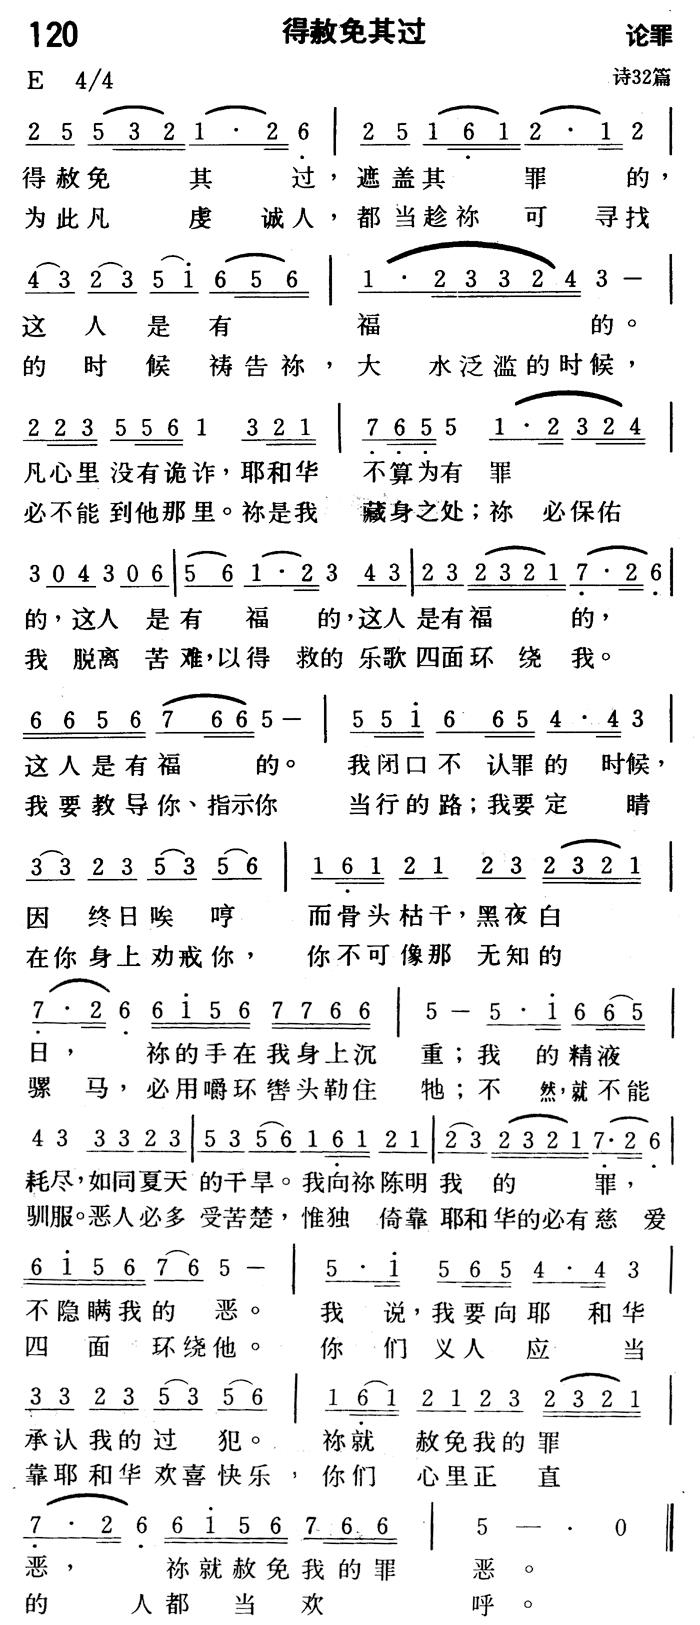 120 得赦免其过 论罪
E 4/4 诗32篇
2 5 5 3 2 1 · 2 6 | 2 5 1 6 1 2 · 1 2 |
得赦免 其 过，遮盖其 罪 的，
为此凡 虔 诚人，都当趁祢 可 寻找
4 3 2 3 5 1 6 5 6 | 1 · 2 3 3 2 4 3 — |
这 人 是 有 福 的。
的 时 候 祷告祢，大 水泛滥的时候，
2 2 3 5 5 6 1 3 2 1 | 7 6 5 5 1 · 2 3 2 4 |
凡心里 没有诡诈，耶和华 不算为有 罪
必不能 到他那里。祢是我 藏身之处；祢 必保佑
3 0 4 3 0 6 | 5 6 1 · 2 3 4 3 | 2 3 2 3 2 1 7 · 2 6 |
的，这人 是 有 福 的，这人 是有福 的，
我 脱离 苦难，以得 救的 乐歌 四面环 绕 我。
6 6 5 6 7 6 6 5 — | 5 5 1 6 6 5 4 · 4 3 |
这人是有福 的。 我闭口不 认罪的 时候，
我要教导你、指示你 当行的路；我要定 睛
3 3 2 3 5 3 5 6 | 1 6 1 2 1 2 3 2 3 2 1 |
因 终日唉 哼 而骨头枯干，黑夜白
在你身上劝戒你， 你不可像那 无知的
7 · 2 6 6 1 5 6 7 7 6 6 | 5 — 5 · 1 6 6 5 |
日， 祢的手在我身上沉 重；我 的精液
骡 马，必用嚼环辔头勒住 牠；不 然，就不能
4 3 3 3 2 3 | 5 3 5 6 1 6 1 2 1 | 2 3 2 3 2 1 7 · 2 6 |
耗尽，如同夏天 的干旱。我向祢陈明 我 的 罪，
驯服。恶人必多 受苦楚，惟独 倚靠 耶和华的必有慈 爱
6 1 5 6 7 6 5 — | 5 · 1 5 6 5 4 · 4 3 |
不隐瞒我的 恶。 我 说，我要向耶 和华
四 面 环绕他。 你 们 义人 应 当
3 3 2 3 5 3 5 6 | 1 6 1 2 1 2 3 2 3 2 1 |
承认我的过 犯。 祢就 赦免我的罪
靠耶和华欢喜快乐，你们 心里正 直
7 · 2 6 6 1 5 6 7 6 6 | 5 — · 0 ‖
恶， 祢就赦免我的罪 恶。
的 人都 当 欢 呼。